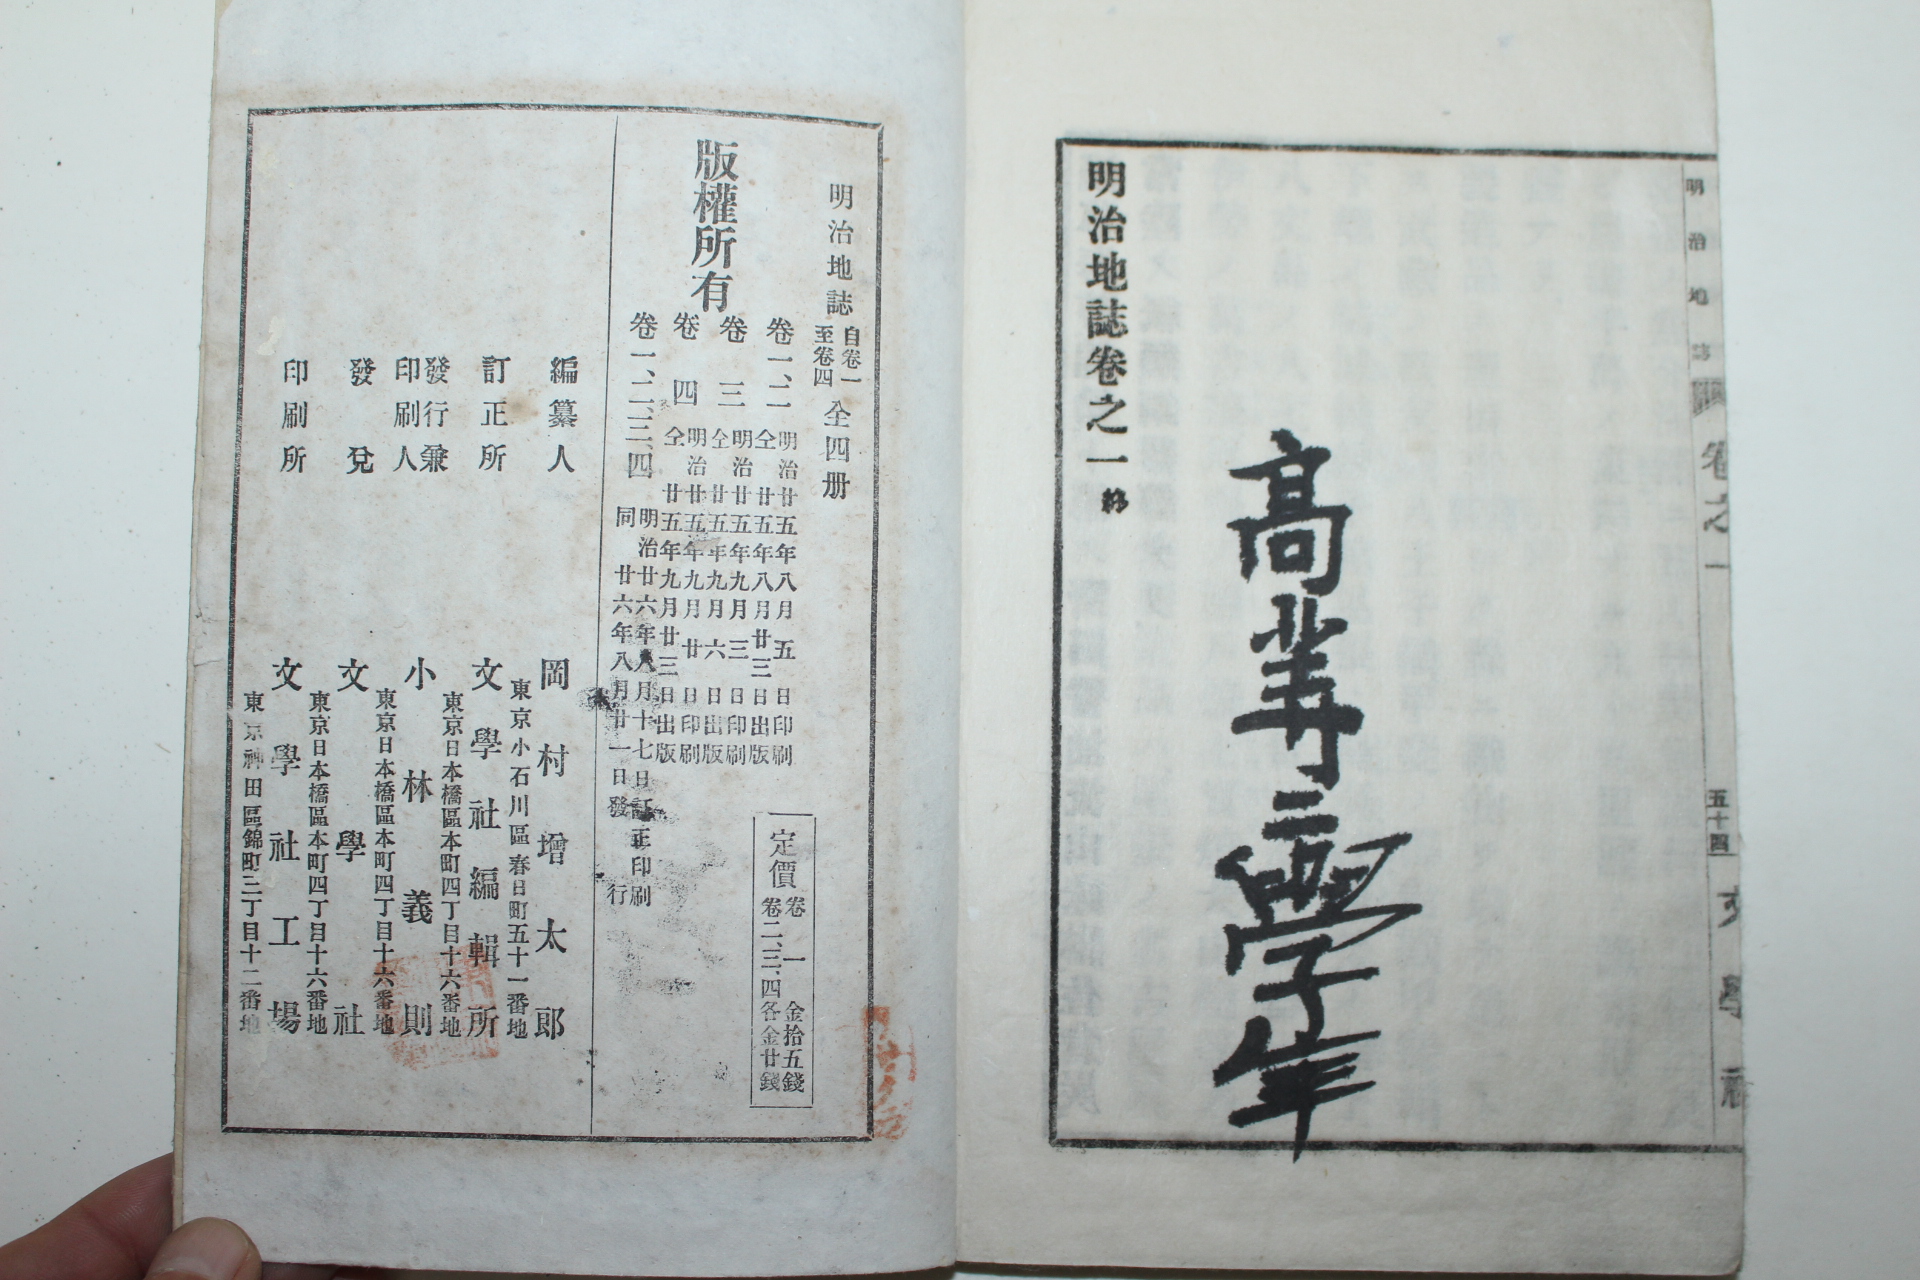 明治地誌 卷之一
五十四
文學社
高等三學年
明治地誌卷之一 終
明治地誌 自卷一至卷四 全四册
版權所有
卷一、二 明治廿五年八月五日印刷
仝廿五年八月廿三日出版
卷三 明治廿五年九月三日印刷
仝廿五年九月六日出版
卷四 明治廿五年九月廿日印刷
仝廿五年九月廿三日出版
卷一、二、三、四 明治廿六年八月十七日訂正印刷
同廿六年八月廿一日發行
定價
卷一 金拾五錢
卷二、三、四各金廿錢
編纂人 岡村增太郎
東京小石川區春日町五十一番地
訂正所 文學社編輯所
東京日本橋區本町四丁目十六番地
發行兼印刷人 小林義則
東京日本橋區本町四丁目十六番地
發兌 文學社
東京日本橋區本町四丁目十六番地
印刷所 文學社工場
東京神田區錦町三丁目十二番地